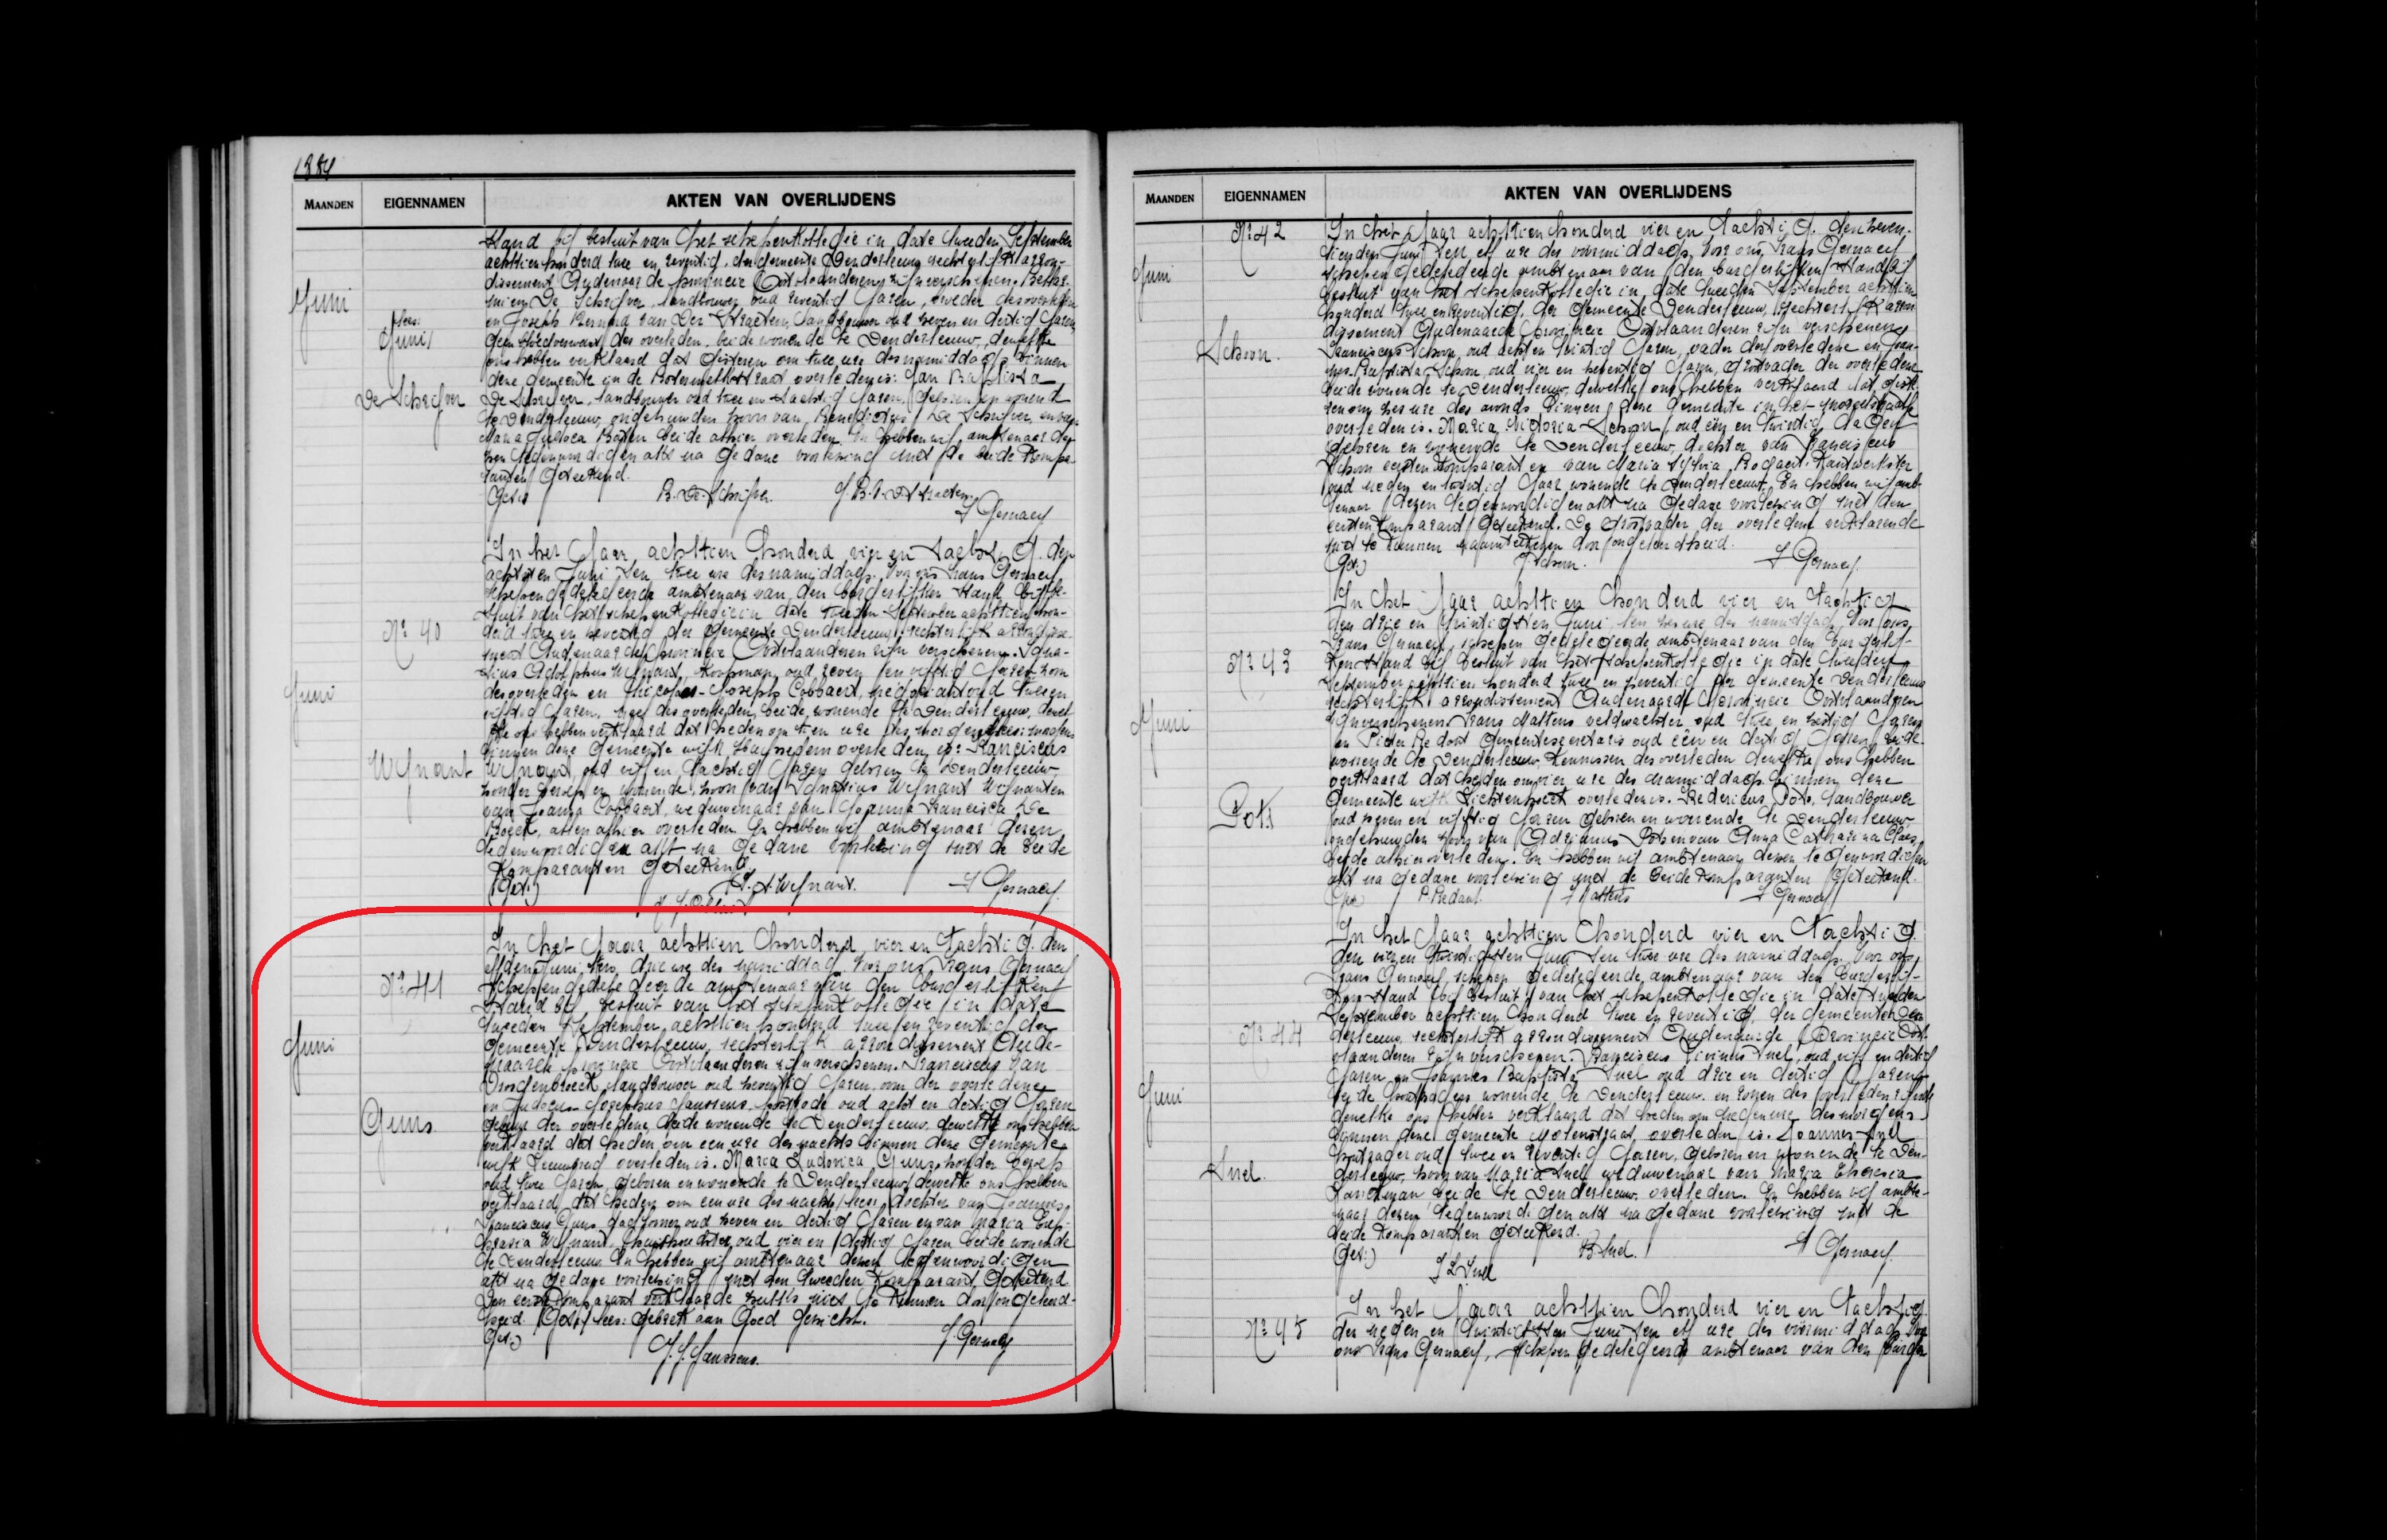 1884
MAANDEN EIGENNAMEN AKTEN VAN OVERLIJDENS
Stand bij besluit van het schepenkollegie in date tweeden September
achttien honderd twee en zeventig, der gemeente Denderleeuw rechterlijk arron-
dissement Audenaarde provincie Oostvlaanderen zijn verschenen.
Juni
De Schrijver, landbouwer oud zeventig Jaren, broeder des overleden
en Joseph Bernard Van Der Straeten, landbouwer oud zeven en dertig Jaren
lees: Juni
geen bloedverwant des overleden, beide wonende te Denderleeuw, dewelke
ons hebben verklaard dat gisteren om twee ure des namiddags binnen
deze gemeente in de overleden is: Jan Baptista
De Schrijver
De Schrijver, landbouwer oud twee en tachtig Jaren, geboren en wonend
te Denderleeuw, ongehuwden zoon van Benedictus De Schrijver, en van
Maria beide alhier overleden. En hebben wij ambtenaar de-
zen tegenwoordigen akt na gedane voorlezing met de beide kompa-
ranten geteekend.
Get:) B. De Schrijver. J. B. V. D. Straeten.
F Gernaey
In het Jaar achttien honderd vier en tachtig. den
achtsten Juni ten twee ure des namiddags. Voor ons Frans Gernaey
schepen gedelegeerde ambtenaar van den burgerlijken Stand bij be-
sluit van het schepenkollegie in date tweeden September achttien hon-
Nr 40
derd twee en zeventig der gemeente Denderleeuw, rechterlijk arrondisse-
ment Audenaarde provincie Oostvlaanderen zijn verschenen. Igna-
tius Adolphus Wijnant, koopman, oud zeven en vijftig Jaren zoon
des overleden en Joseph Cobbaert, oud twee en
Juni
vijftig Jaren, des overleden, beide wonende te Denderleeuw, dewel-
ke ons hebben verklaard dat heden om tien ure des morgens
binnen deze gemeente wijk Huissegem overleden is: Franciscus
Wijnant
Wijnant, oud vijf en tachtig Jaren geboren te Denderleeuw,
zonder beroep en wonende, zoon van Ignatius Wijnant Wijnant en
van Joanna Cobbaert, weduwenaar van Joanna Francisca De
allen alhier overleden. En hebben wij ambtenaar dezen
tegenwoordigen akt na gedane voorlezing met de beide
Komparanten geteekend.
(Get:) I. A. Wijnant. F Gernaey
In het Jaar achttien honderd vier en tachtig. den
elfden Juni, ten drie ure des namiddag. Voor ons Frans Gernaey
Nr 41
Schepen gedelegeerde ambtenaar van den burgerlijken
Stand bij besluit van het schepenkollegie in date
tweeden September achttien honderd twee en zeventig der
Juni
gemeente Denderleeuw, rechterlijk arrondissement Aude-
naarde, provincie Oostvlaanderen zijn verschenen. Franciscus Van
Droogenbroeck, landbouwer oud zeventig Jaren, oom der overledene
en Judocus Josephus Janssens, oud acht en dertig Jaren
Geuns.
gebuur der overledene, beide wonende te Denderleeuw, dewelke ons hebben
verklaard dat heden om een ure des nachts binnen deze Gemeente
wijk overleden is. Maria Ludovica Geuns, zonder beroep
oud twee Jaren, geboren en wonende te Denderleeuw, dewelke ons hebben
verklaard dat heden om een ure des nachts lees: dochter van Joannes
Franciscus Geuns, daglooner, oud zeven en dertig Jaren en van Maria
Wijnant, huishoudster, oud vier en dertig Jaren beide wonende
te Denderleeuw. En hebben wij ambtenaar dezen tegenwoordigen
akt na gedane voorlezing met den tweeden Komparant geteekend.
Den eersten Komparant verklaarde zulks niet te Kunnen door ongeleerd-
heid. Get:) lees: gebrek aan goed gezicht.
Get:) J. J. Janssens. F. Gernaey
MAANDEN EIGENNAMEN AKTEN VAN OVERLIJDENS
Nr 42
In het Jaar achttien honderd vier en tachtig. den zeven-
tienden Juni ten elf ure des voormiddags, voor ons, Frans Gernaey
Juni
schepen gedelegeerde ambtenaar van den burgerlijken Stand bij
besluit van het schepenkollegie in date tweeden September achttien
honderd twee en zeventig, der gemeente Denderleeuw, rechterlijk arron-
dissement Audenaarde, provincie Oostvlaanderen zijn verschenen
Schoon.
Franciscus Schoon, oud acht en twintig Jaren, vader der overledene en Joan-
nes Baptista Schoon, oud vier en zeventig Jaren, grootvader der overledene
beide wonende te Denderleeuw, dewelke ons hebben verklaard dat giste-
ren om zes ure des avonds binnen deze gemeente in het
overleden is. Maria Victoria Schoon, oud een en twintig dagen
geboren en wonende te Denderleeuw, dochter van Franciscus
Schoon eersten komparant en van Maria Silvia Kantwerkster
oud negen en twintig Jaar wonende te Denderleeuw. En hebben wij amb-
tenaar dezen tegenwoordigen akt na gedane voorlezing met den
eersten Komparant geteekend. De grootvader der overledene verklarende
niet te kunnen naamteekenen door ongeleerdheid.
(Get:) F. Schoon. F Gernaey.
In het Jaar achttien honderd vier en tachtig
den drie en twintigsten Juni, ten zes ure des namiddags, Voor ons,
Frans Gernaey, schepen gedelegeerde ambtenaar van den burgerlij-
Nr 43
ken Stand bij besluit van het schepenkollegie in date tweeden
September achttien honderd twee en zeventig der gemeente Denderleeuw
rechterlijk arrondissement Audenaarde provincie Oostvlaanderen
Juni
zijn verschenen. Frans Mattens veldwachter oud twee en zestig Jaren
en Pieter Redant Gemeentesecretaris oud een en dertig Jaren, beide
wonende te Denderleeuw, Kennissen des overleden dewelke ons hebben
verklaard dat heden om vier ure des namiddags binnen deze
Pots
gemeente wijk Lichtenhoek overleden is. Fredericus Pots, landbouwer
oud zeven en vijftig Jaren geboren en wonende te Denderleeuw
ongehuwden zoon van Adrianus Pots en van Anna Catharina Claes,
beide alhier overleden. En hebben wij ambtenaar dezen tegenwoordigen
akt na gedane voorlezing met de beide Komparanten Geteekend.
(Get:) P. Redant. F Mattens F Gernaey
In het Jaar achttien honderd vier en tachtig.
den vier en twintigsten Juni ten twee ure des namiddags. Voor ons
Frans Gernaey, schepen gedelegeerde ambtenaar van den burgerlij-
ken Stand bij besluit van het schepenkollegie in date tweeden
September achttien honderd twee en zeventig, der gemeente Den-
Nr 44
derleeuw, rechterlijk arrondissement Audenaarde Provincie Oost-
vlaanderen zijn verschenen. Franciscus Livinus Snel, oud vijf en dertig
Jaren en Joannes Baptista Snel oud drie en dertig Jaren
Juni
beide wonende te Denderleeuw. en zonen des overleden
dewelke ons hebben verklaard dat heden om ure des morgens
binnen deze gemeente Molenstraat, overleden is. Joannes Snel
oud twee en zeventig Jaren, geboren en wonende te Den-
Snel.
derleeuw, zoon van Maria Snel, weduwenaar van Maria Theresia
beide te Denderleeuw overleden. En hebben wij ambte-
naar dezen tegenwoordigen akt na gedane voorlezing met de
beide Komparanten geteekend.
Get:) F L Snel B. Snel. F Gernaey.
In het Jaar achttien honderd vier en tachtig.
Nr 45
den negen en twintigsten Juni ten elf ure des voormiddags Voor
ons Frans Gernaey, schepen gedelegeerde ambtenaar van den burger-